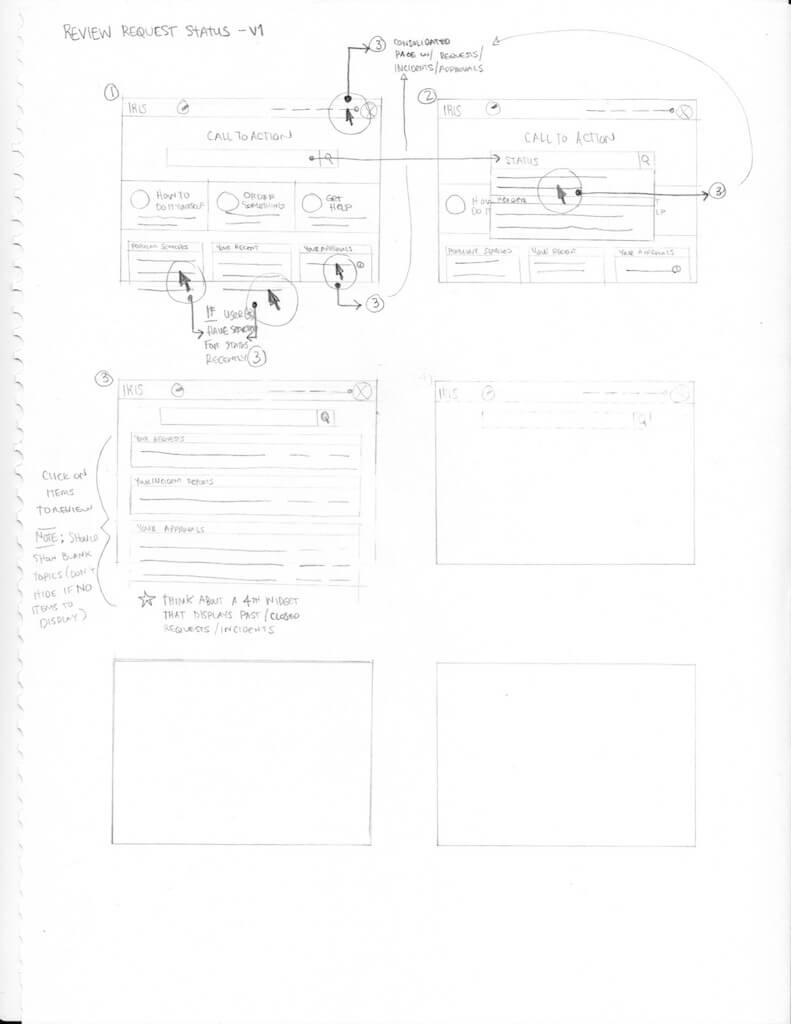 REVIEW REQUEST STATUS - V1
3 CONSOLIDATED
PAGE W/ REQUESTS/
INCIDENTS/APPROVALS
1
IRIS
CALL TO ACTION
Q
HOW TO
DO IT YOURSELF
ORDER
SOMETHING
GET
HELP
POPULAR SEARCHES
YOUR RECENT
YOUR APPROVALS
3
IF USER(S)
HAVE SEARCHED
FOR STATUS
RECENTLY 3
2
IRIS
CALL TO ACTION
STATUS
Q
3
HOW
DO IT
T
LP
POPULAR SEARCHES
YOUR RECENT
YOUR APPROVALS
3
IRIS
Q
YOUR REQUESTS
YOUR INCIDENT REPORTS
YOUR APPROVALS
CLICK ON
ITEMS
TO REVIEW
NOTE: SHOULD
SHOW BLANK
TOPICS (DON'T
HIDE IF NO
ITEMS TO
DISPLAY)
THINK ABOUT A 4TH WIDGET
THAT DISPLAYS PAST/CLOSED
REQUESTS/INCIDENTS
4
IRIS
Q